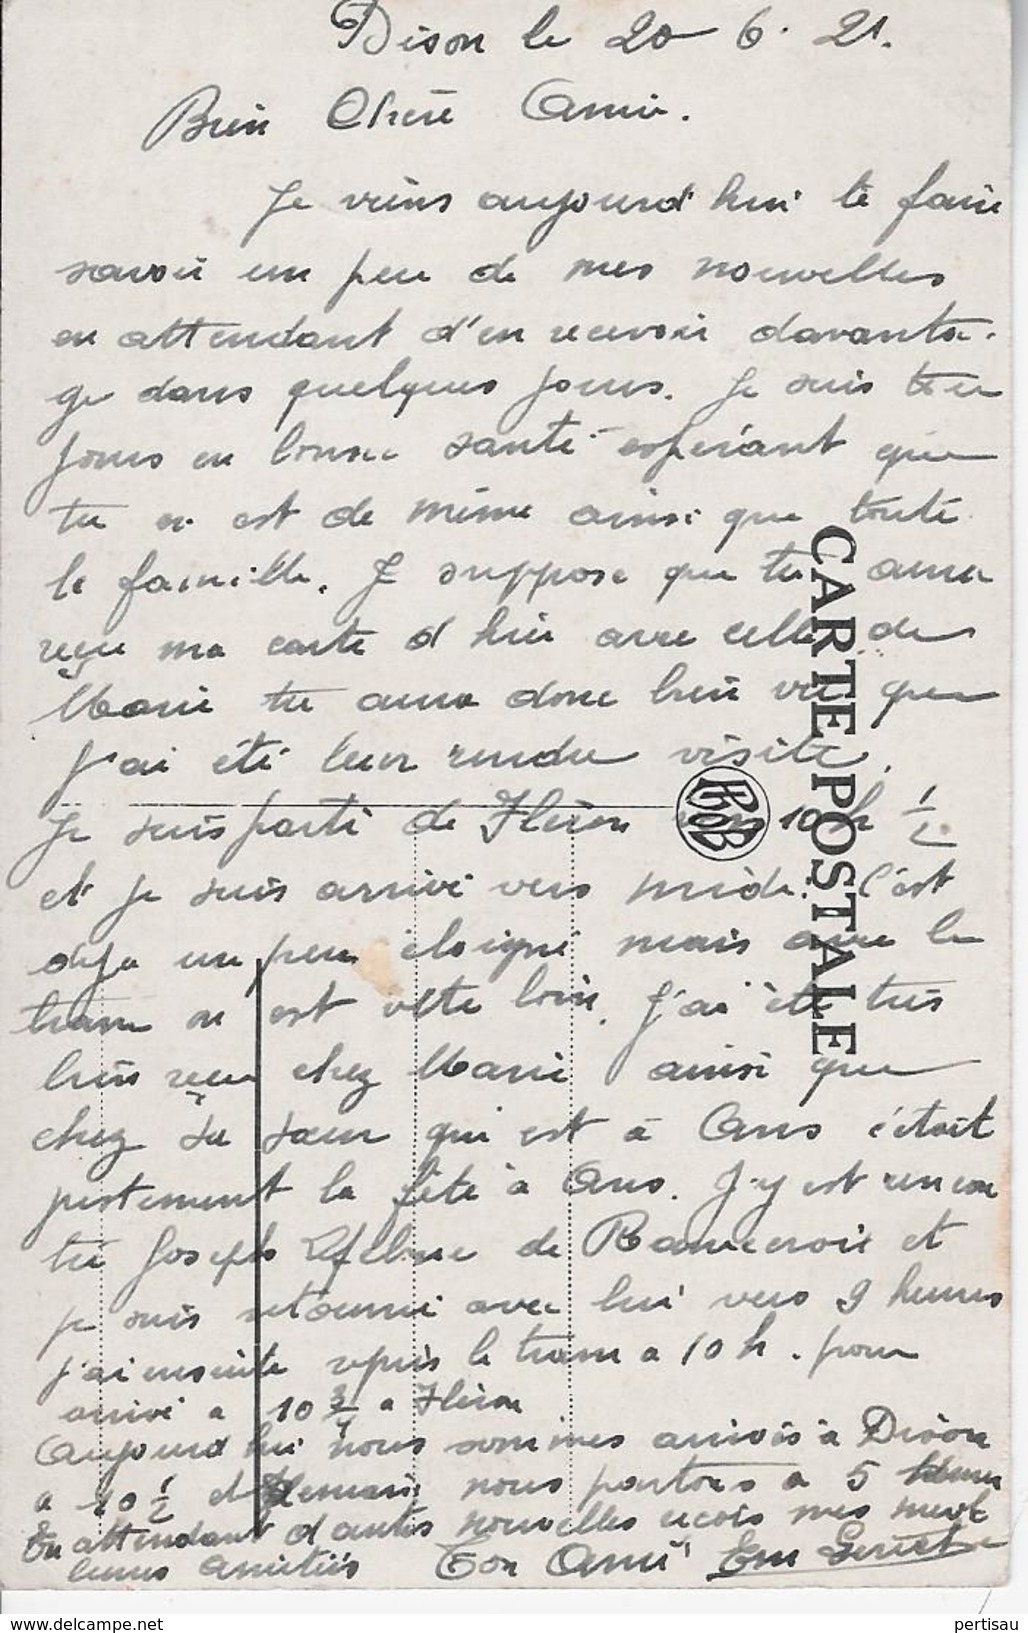 Dison le 20 6. 21.
Bien Chère Amie.
Je viens aujourd'hui te faire
savoir un peu de mes nouvelles
en attendant d'en recevoir davanta-
ge dans quelques jours. Je suis tou
jours en bonne santé espérant que
tu en est de même ainsi que toute
la famille. Je suppose que tu aura
reçu ma carte d'hier avec celle de
Marie tu aura donc bien vu que
j'ai été leur rendre visite.
Je suis parti de Fléron 10 h 1/2
et je suis arrivé vers midi. C'est
déja un peu éloigné mais avec le
tram on est vite loin. J'ai été très
bien reçu chez Marie ainsi que
chez sa soeur qui est à Ans c'était
justement la fête à Ans. J'y est rencon
tré Joseph Lefebvre de et
je suis retourné avec lui vers 9 heures
j'ai ensuite repris le tram a 10 h. pour
arrivé a 10 3/4 a Fléron
Aujourd'hui nous sommes arrivés à Dison
a 10 1/2 et demain nous partons a 5 heures
En attendant d'autres nouvelles reçois mes meil
leures amitiés Ton Ami Em
CARTE POSTALE
pertisau